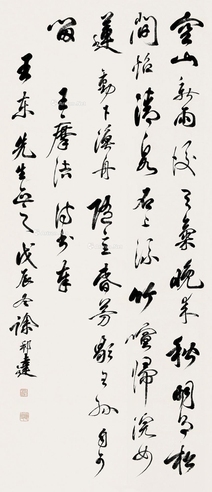 空山新雨後天氣晚來秋明月松
間照清泉石上流竹喧歸浣女
蓮動下漁舟隨意春芳歇王孫自可
留
王摩詰詩書奉
王东先生正之戊辰冬徐邦達